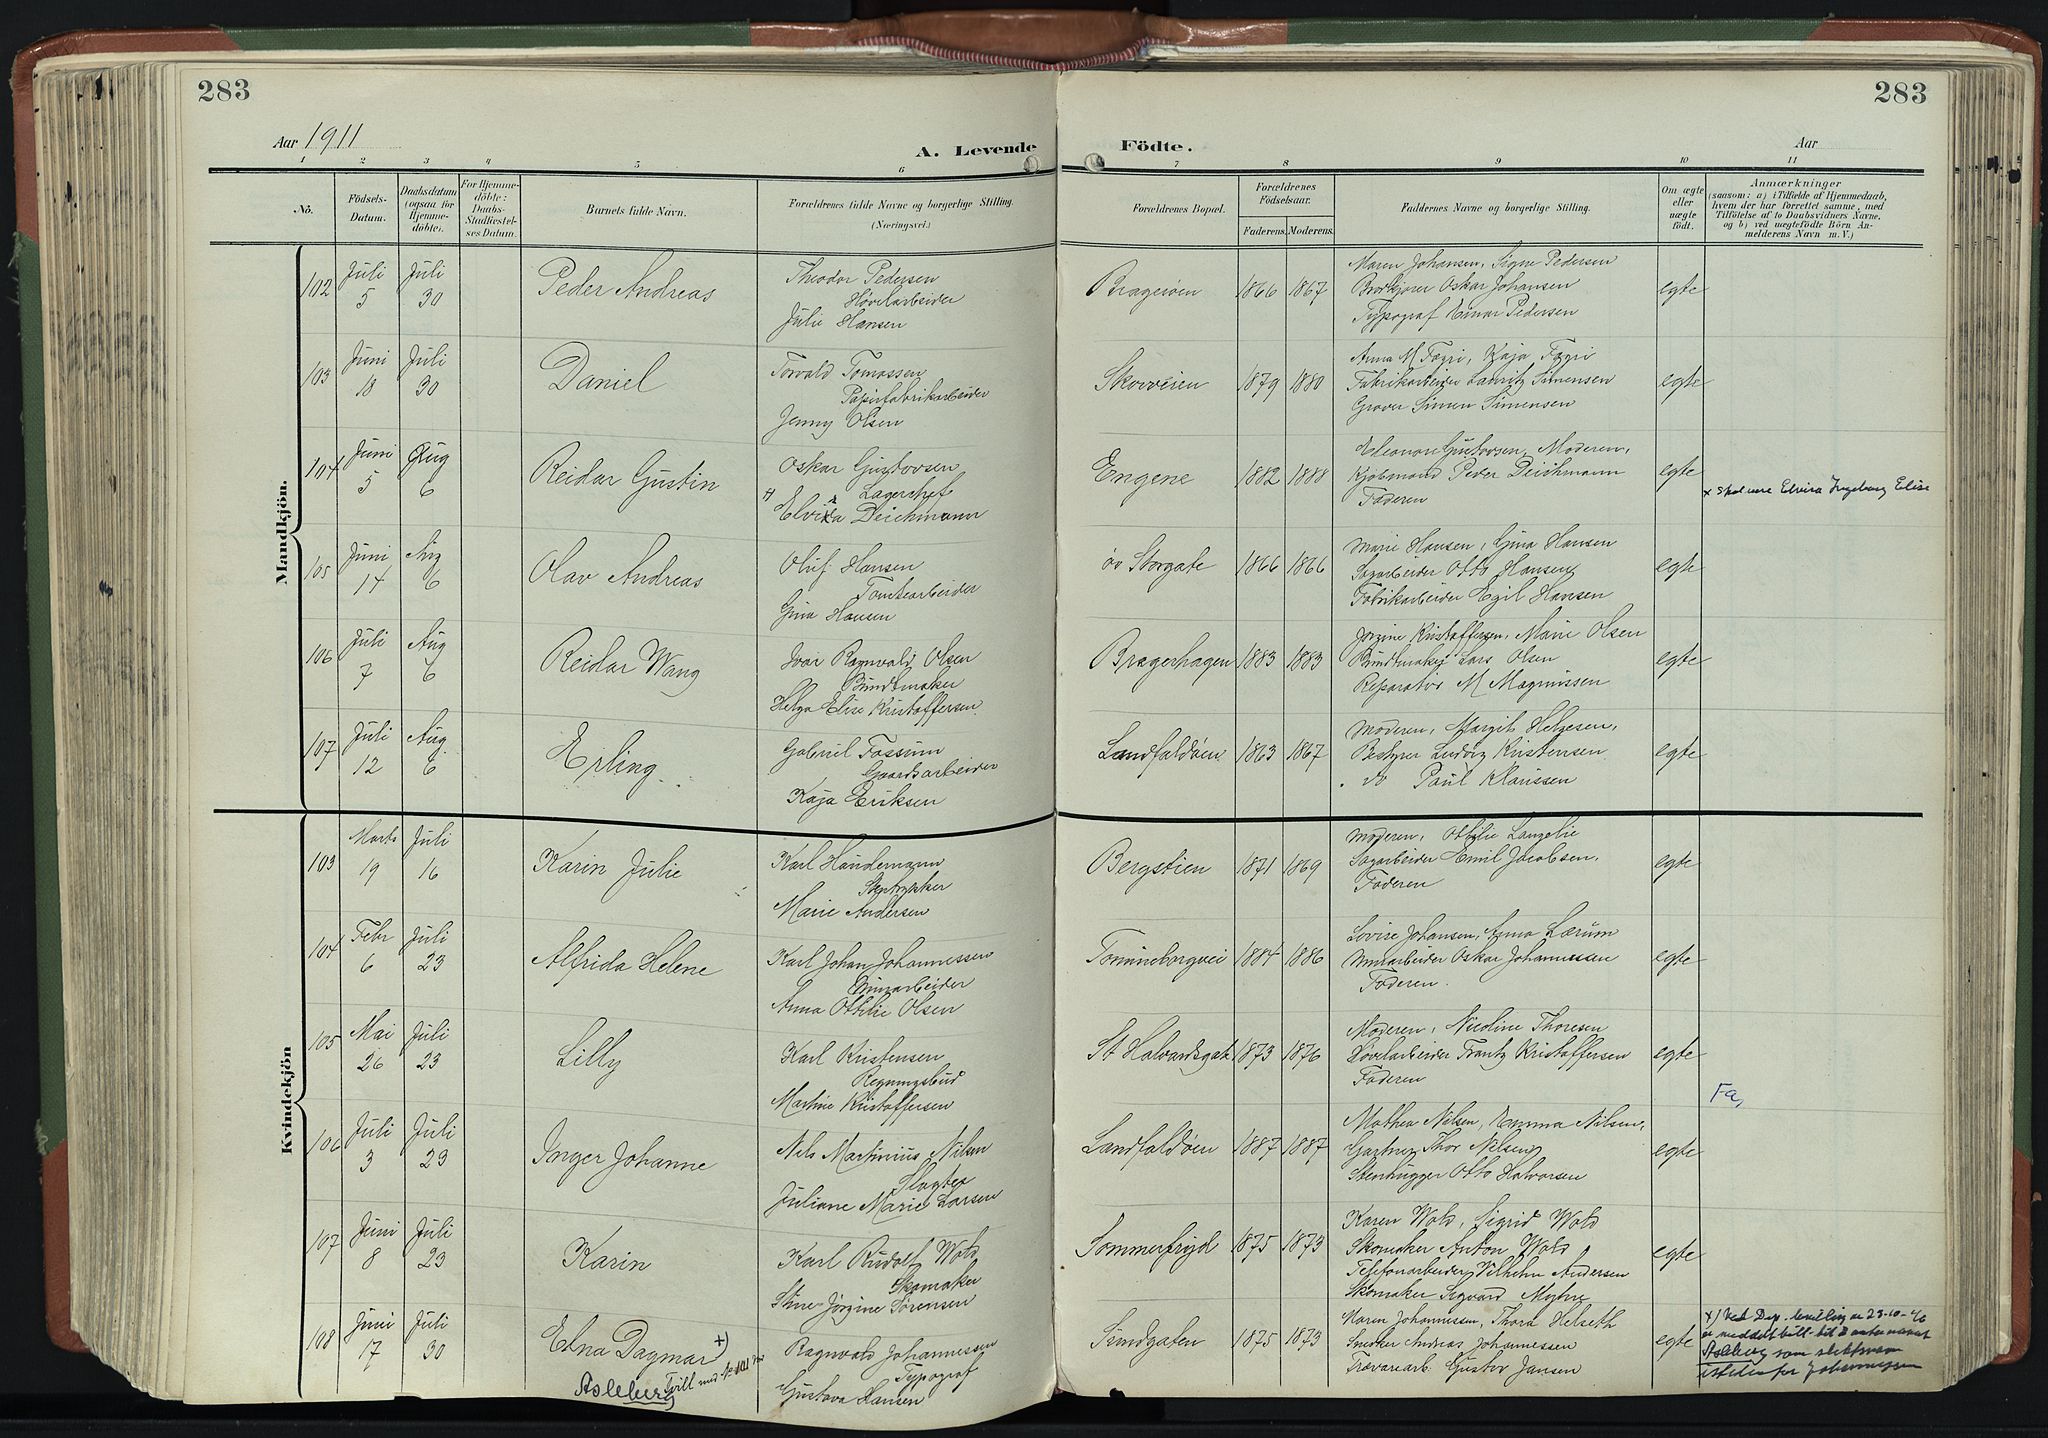 283
283
Aar 1911
A. Levende
Födte.
Aar
1 2 3 4 5 6 7 8 9 10 11
No.
Födsels-
Datum.
Daabsdatum
(ogsaa for
Hjemme-
döbte).
For Hjemme-
döbte:
Daabs-
Stadfæstel-
ses Datum.
Barnets fulde Navn.
Forældrenes fulde Navne og borgerlige Stilling.
(Næringsvei.)
Forældrenes Bopæl.
Forældrenes
Födselsaar.
Faderens. Moderens.
Faddernes Navne og borgerlige Stilling.
Om ægte
eller
uægte
födt.
Anmærkninger
(saasom: a) i Tilfælde af Hjemmedaab,
hvem der har forrettet samme, med
Tilföielse af to Daabsvidners Navne,
og b) ved uægtefödte Börn An-
melderens Navn m. V.)
Mandkjön.
102 Juli 5 Juli 30 Peder Andreas
Theodor Pedersen
Høvelarbeider
Julie Hansen
Bragerøen 1866 1867
Maren Johansen, Signe Pedersen
Oskar Johansen
Typograf Einar Pedersen
egte
103 Juni 18 Juli 30 Daniel
Torvald Tomassen
Papirfabrikarbeider
Jenny Olsen
Skovveien 1879 1880
Anna M Fagri, Kaja Fagri
Fabrikarbeider Lauritz Simensen
Graver Simen Simensen
egte
104 Juni 5 Aug 6 Reidar Gustin
Oskar Gustovsen
Lagerchef
x) Elvira Deichmann
Engene 1882 1888
Eleonore Gustovsen, Moderen,
Kjøbmand Peder Deichmann
Faderen
egte
x skal være Elvira Ingeborg Elise
105 Juni 14 Aug 6 Olav Andreas
Oluf Hansen
Tomtearbeider
Gina Hansen
øv Storgate 1866 1866
Marie Hansen, Gina Hansen
Sagarbeider Otto Hansen
Fabrikarbeider Egil Hansen
egte
106 Juli 7 Aug 6 Reidar Wang
Ivar Ragnvald Olsen
Bundtmaker
Helga Elise Kristoffersen
Bragerhagen 1883 1883
Jørgine Kristoffersen, Marie Olsen
Bundtmaker Lars Olsen
Reparatør M Magnussen
egte
107 Juli 12 Aug. 6 Erling
Gabriel Fossum
Gaardsarbeider
Kaja Eriksen
Landfaldøen 1863 1867
Moderen, Margit Helgesen,
Bestyrer Ludvig Kristensen
do Paul Klaussen
egte
Kvindekjön
103 Marts 19 Juli 16 Karin Julie
Karl Haudemann
Marie Andersen
Bergstien 1871 1869
Moderen, Ottilie Langelie
Sagarbeider Emil Jacobsen,
Faderen
egte
104 Febr 6 Juli 23 Alfrida Helene
Karl Johan Johannessen
Minarbeider
Anna Ottilie Olsen
Tomineborgvei 1884 1886
Lovise Johansen, Anna Lærum
Minarbeider Oskar Johannessen
Faderen.
egte
105 Mai 26 Juli 23 Lilly
Karl Kristensen
Regningsbud
Martine Kristoffersen
St Halvardsgate 1873 1876
Moderen, Nicoline Thoresen
Høvelarbeider Frantz Kristoffersen
Faderen
egte
Fa,
106 Juli 3 Juli 23 Inger Johanne
Nils Martinius Nilsen
Slagter
Juliane Marie Larsen
Landfaldøen 1887 1887
Mathea Nilsen, Emma Nilsen,
Gartner Thor Nilsen
Stenhugger Otto Halvorsen
egte
107 Juni 8 Juli 23 Karin
Karl Rudolf Wold
Skomaker
Stine Jørgine Sørensen
Sommerfryd 1875 1873
Karen Wold, Sigrid Wold
Skomaker Anton Wold
Telefonarbeider Vilhelm Andersen
Skomaker Sigvard Myhre
egte
108 Juni 17 Juli 30 Elna Dagmar +)
Tvill med No 101
Asleberg
Ragnvald Johannessen
Typograf
Gustava Hansen
Sundgaten 1875 1873
Maren Johannessen, Thora Helseth
Snedker Andreas Johannessen
Trævarearb. Gustav Jansen
egte
x) Ved Dep. bevilling av 23-10-46
er meddelt bill. til å anta navnet
Asleberg som slektsnavn
istedenfor Johannessen